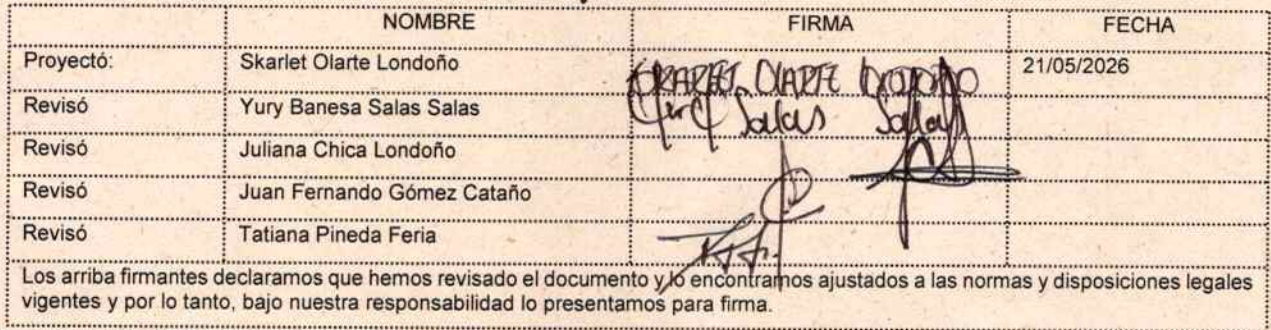 NOMBRE FIRMA FECHA
Proyectó: Skarlet Olarte Londoño SKARLET OLARTE LONDOÑO 21/05/2026
Revisó Yury Banesa Salas Salas Salas Salas
Revisó Juliana Chica Londoño
Revisó Juan Fernando Gómez Cataño
Revisó Tatiana Pineda Feria
Los arriba firmantes declaramos que hemos revisado el documento y lo encontramos ajustados a las normas y disposiciones legales
vigentes y por lo tanto, bajo nuestra responsabilidad lo presentamos para firma.